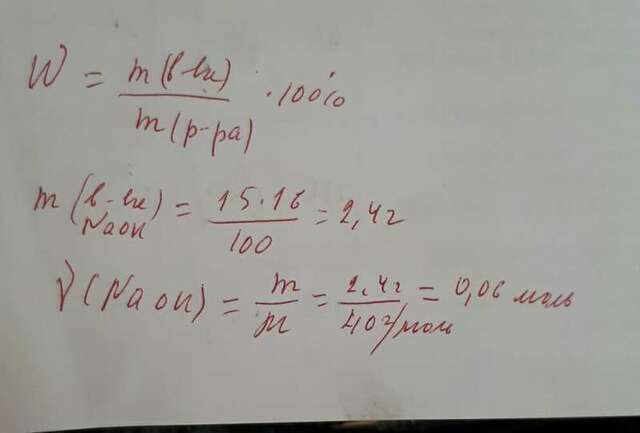 W = m(в-ва) / m(р-ра) · 100%
m (в-ва NaOH) = 15·16 / 100 = 2,4г
ν(NaOH) = m / M = 2,4г / 40г/моль = 0,06 моль